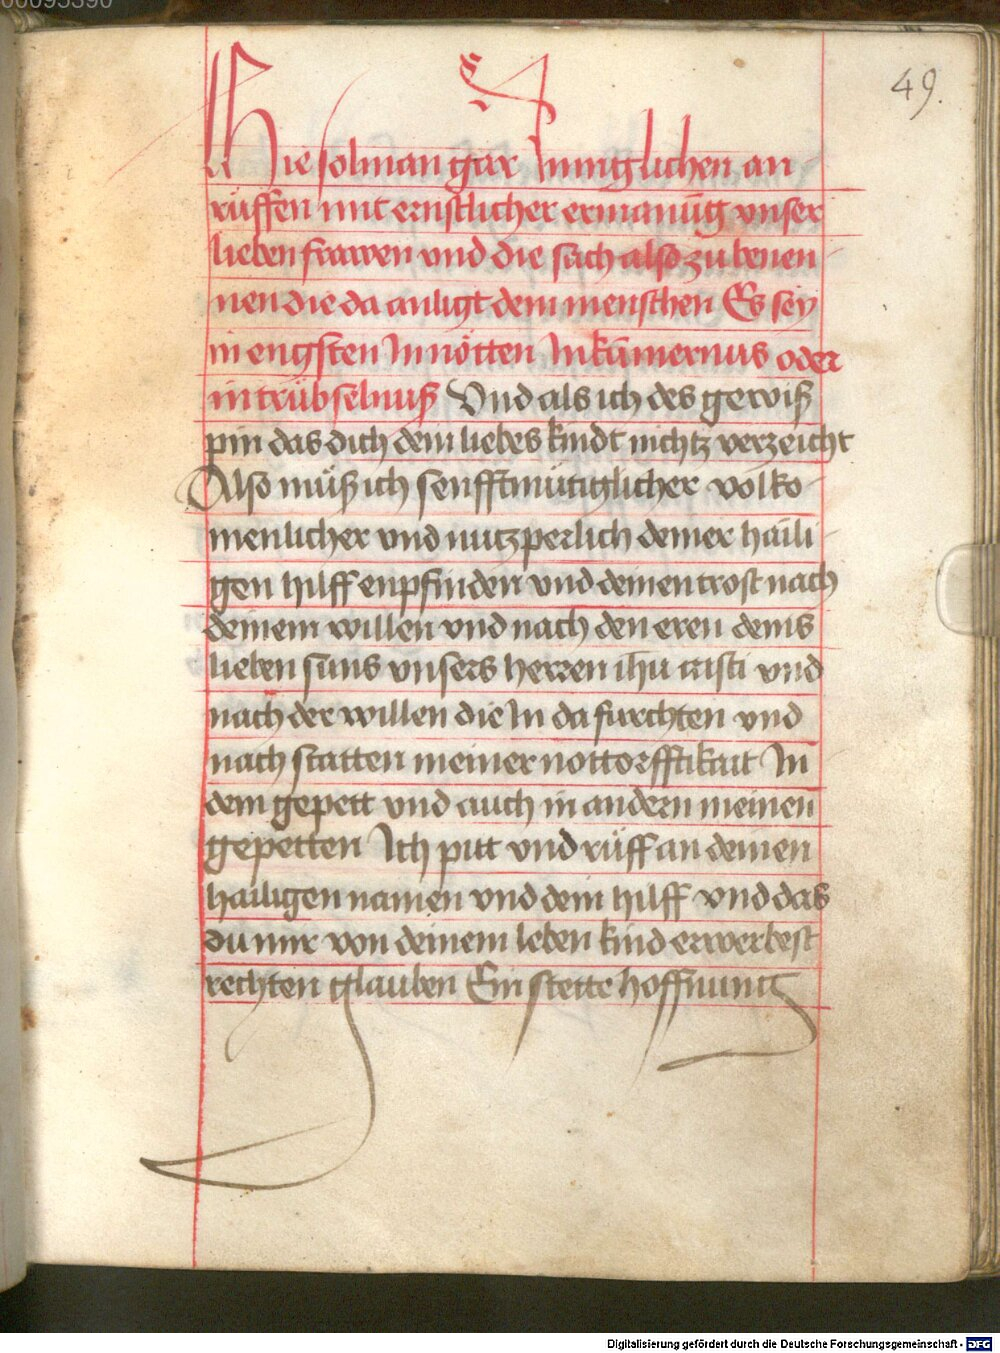 00095390
49.
Hie sol man gar Inniglichen an
rüffen mit ernstlicher ermanūg vnser
lieben frawen vnd die sach also zu benen
nen die da anligt dem menschen Es sey
in engsten In nötten In kūmernus oder
in trübselnuß Vnd als ich des gewiß
pin das dich dein liebes kindt nichtz verzeicht
Also müß ich senfftmütiglicher volko
menlicher vnd nutzperlich deiner haili
gen hilff enpfinden vnd deinen trost nach
deinem willen vnd nach den eren deins
lieben suns vnsers herren ihū cristi vnd
nach der willen die In da furchten vnd
nach statten meiner nottorfftikait In
dem gepett vnd auch in andern meinen
gepetten Ich pitt vnd rüff an deinen
hailigen namen vnd dein hilff vnd das
du mir von deinem leben kind erwerbest
rechten glauben Ein stette hoffnung
Digitalisierung gefördert durch die Deutsche Forschungsgemeinschaft - DFG